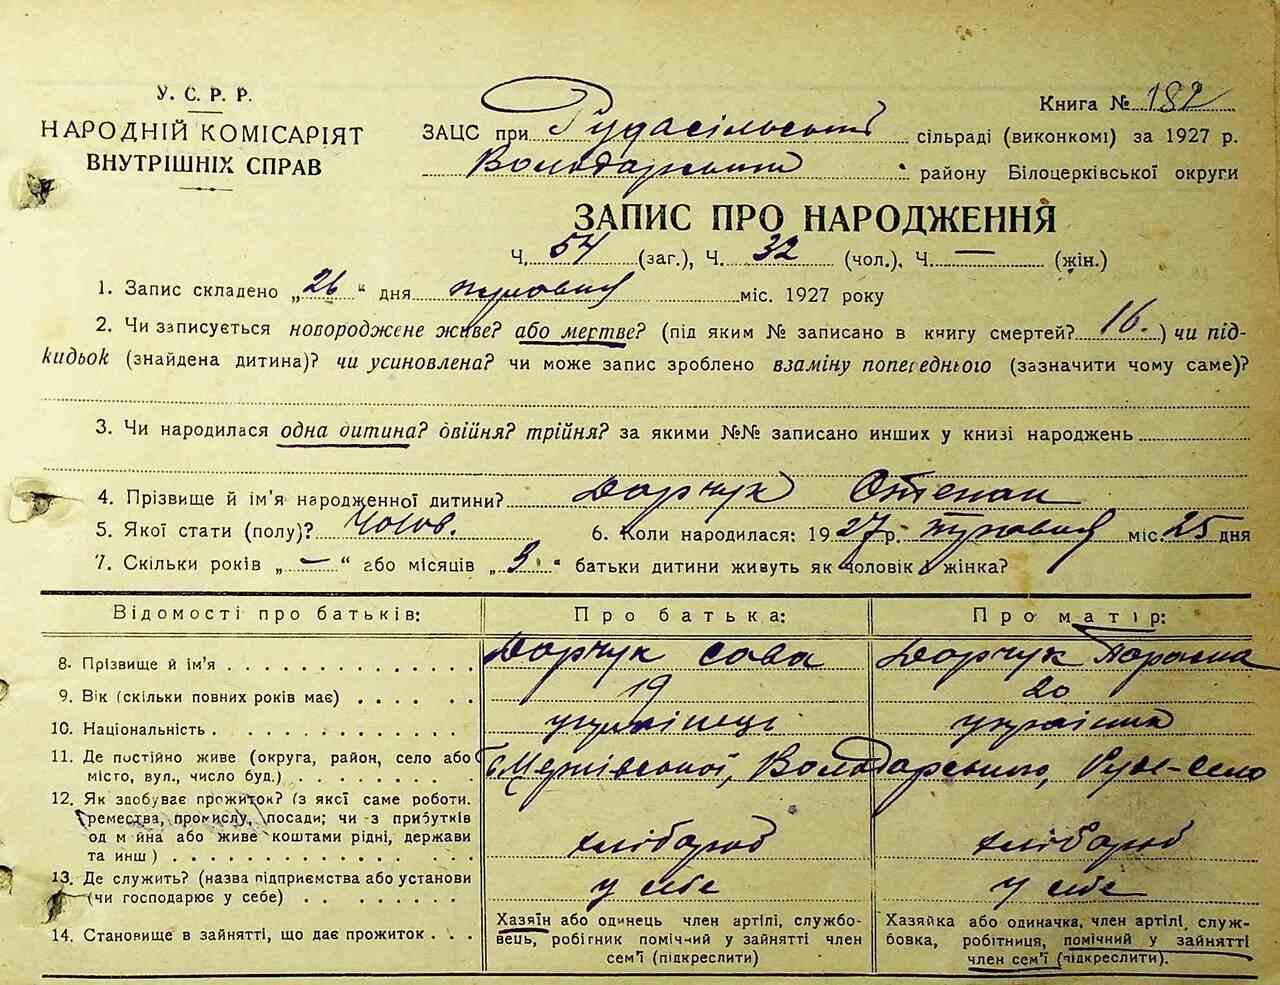 У. С. Р. Р.
НАРОДНІЙ КОМІСАРІЯТ
ВНУТРІШНІХ СПРАВ
Книга № 182
ЗАЦС при Рудасільській сільраді (виконкомі) за 1927 р.
Володарського району Білоцерківської округи
ЗАПИС ПРО НАРОДЖЕННЯ
Ч. 54 (заг.), Ч. 32 (чол.), Ч. — (жін.)
1. Запис складено „26“ дня міс. 1927 року
2. Чи записується новороджене живе? або мертве? (під яким № записано в книгу смертей? 16.) чи під-
кидьок (знайдена дитина)? чи усиновлена? чи може запис зроблено взаміну попереднього (зазначити чому саме)?
3. Чи народилася одна дитина? двійня? трійня? за якими №№ записано инших у книзі народжень
4. Прізвище й ім'я народженної дитини? Дарчук Степан
5. Якої стати (полу)? Чолов. 6. Коли народилася: 1927 р. міс. 25 дня
7. Скільки років „—“ або місяців „3“ батьки дитини живуть як чоловік і жінка?
Відомості про батьків: Про батька: Про матір:
8. Прізвище й ім'я Дарчук Сава Дарчук Параска
9. Вік (скільки повних років має) 19 20
10. Національність українець українка
11. Де постійно живе (округа, район, село або
місто, вул., число буд.) Володарського, Руде-село
12. Як здобуває прожиток? (з яксї саме роботи.
ремества, промислу, посади; чи з прибутків
од майна або живе коштами рідні, держави
та инш) хлібороб хлібороб
13. Де служить? (назва підприємства або установи
(чи господарює у себе) у себе у себе
14. Становище в зайнятті, що дає прожиток
Хазяїн або одинець член артілі, службо-
вець, робігник помічний у зайнятті член
сем'ї (підкреслити)
Хазяйка або одиначка, член артілі, служ-
бовка, робітниця, помічний у зайнятті
член сем'ї (підкреслити).